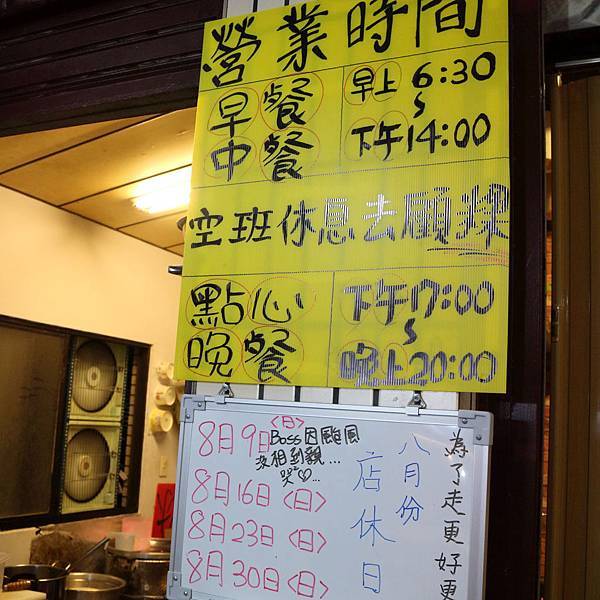 營業時間
早餐 早上 6:30
~
中餐 下午14:00
空班休息去顧粿
點心 下午17:00
~
晚餐 晚上20:00
8月9日<日>
Boss因颱風
沒相到親...
哭♡...
8月16日<日>
8月23日<日>
8月30日<日>
八月份
店休日
為了走更好更